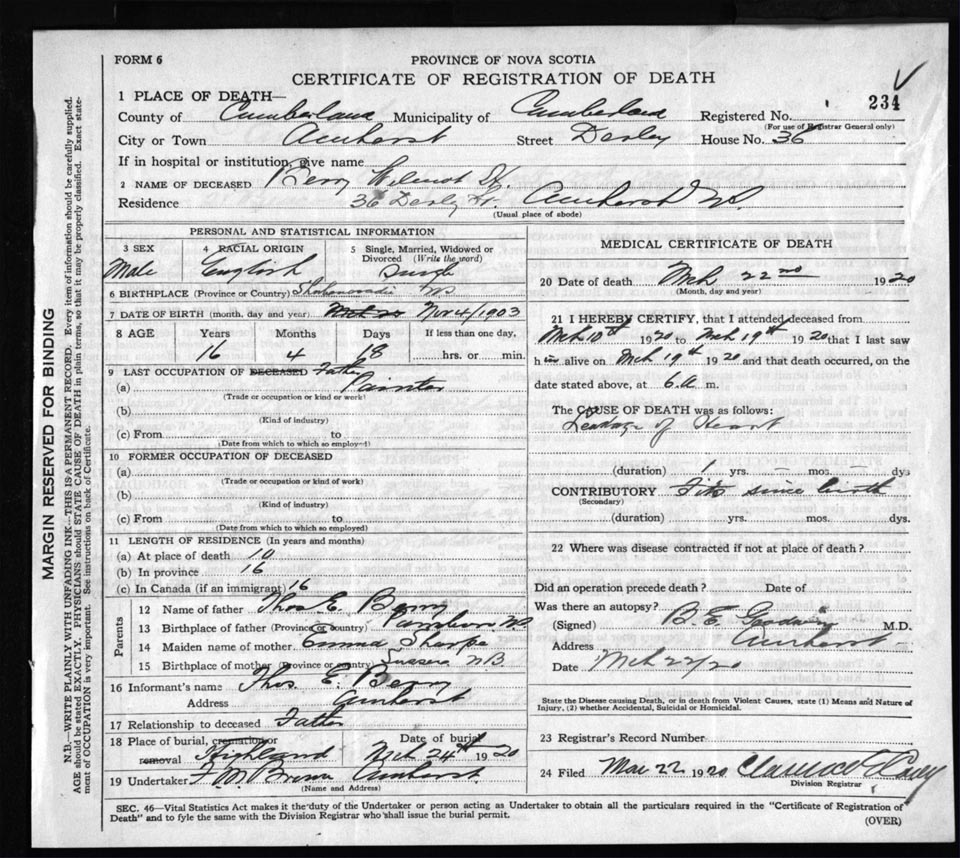 FORM 6
PROVINCE OF NOVA SCOTIA
CERTIFICATE OF REGISTRATION OF DEATH
234
1 PLACE OF DEATH—
County of Cumberland Municipality of Cumberland Registered No.
(For use of Registrar General only)
City or Town Amherst Street Derby House No. 36
If in hospital or institution, give name
2 NAME OF DECEASED Berry Wilmot
Residence 36 Derby St. Amherst N.S.
(Usual place of abode)
PERSONAL AND STATISTICAL INFORMATION
3 SEX 4 RACIAL ORIGIN 5 Single, Married, Widowed or Divorced (Write the word)
Male English Single
6 BIRTHPLACE (Province or Country) NS
7 DATE OF BIRTH (month, day and year) Nov 4/1903
8 AGE Years Months Days If less than one day,
16 4 hrs. or min.
9 LAST OCCUPATION OF DECEASED Father
(a) Painter
(Trade or occupation or kind or work)
(b)
(Kind of industry)
(c) From to
(Date from which to which so employed)
10 FORMER OCCUPATION OF DECEASED
(a)
(Trade or occupation or kind of work)
(b)
(Kind of industry)
(c) From to
(Date from which to which so employed)
11 LENGTH OF RESIDENCE (In years and months)
(a) At place of death 10
(b) In province 16
(c) In Canada (if an immigrant) 16
Parents
12 Name of father Thos E. Berry
13 Birthplace of father (Province or Country) NS
14 Maiden name of mother Emma Sharpe
15 Birthplace of mother (Province or Country) Sussex NB
16 Informant's name Thos. E. Berry
Address Amherst
17 Relationship to deceased Father
18 Place of burial, cremation or removal Highland Date of burial Mch 24th 1920
19 Undertaker Brown Amherst
(Name and Address)
MEDICAL CERTIFICATE OF DEATH
20 Date of death Mch 22nd 1920
(Month, day and year)
21 I HEREBY CERTIFY, that I attended deceased from
Mch 10th 1920 to Mch 19th 1920 that I last saw
him alive on Mch 19th 1920 and that death occurred, on the
date stated above, at 6 a m.
The CAUSE OF DEATH was as follows:
Leakage of Heart
(duration) 1 yrs. — mos. — dys
CONTRIBUTORY Fits since birth
(Secondary)
(duration) yrs. mos. dys.
22 Where was disease contracted if not at place of death?
Did an operation precede death? Date of
Was there an autopsy?
(Signed) B. E. Goodwin M.D.
Address Amherst
Date Mch 22/20
State the Disease causing Death, or in death from Violent Causes, state (1) Means and Nature of
Injury, (2) whether Accidental, Suicidal or Homicidal.
23 Registrar's Record Number
24 Filed Mar 22 1920 Clarence
Division Registrar
SEC. 46—Vital Statistics Act makes it the duty of the Undertaker or person acting as Undertaker to obtain all the particulars required in the "Certificate of Registration of
Death" and to fyle the same with the Division Registrar who shall issue the burial permit.
(OVER)
MARGIN RESERVED FOR BINDING
N.B.—WRITE PLAINLY WITH UNFADING INK—THIS IS A PERMANENT RECORD. Every item of information should be carefully supplied.
AGE should be stated EXACTLY. PHYSICIANS should STATE CAUSE OF DEATH in plain terms, so that it may be properly classified. Exact state-
ment of OCCUPATION is very important. See instructions on back of Certificate.